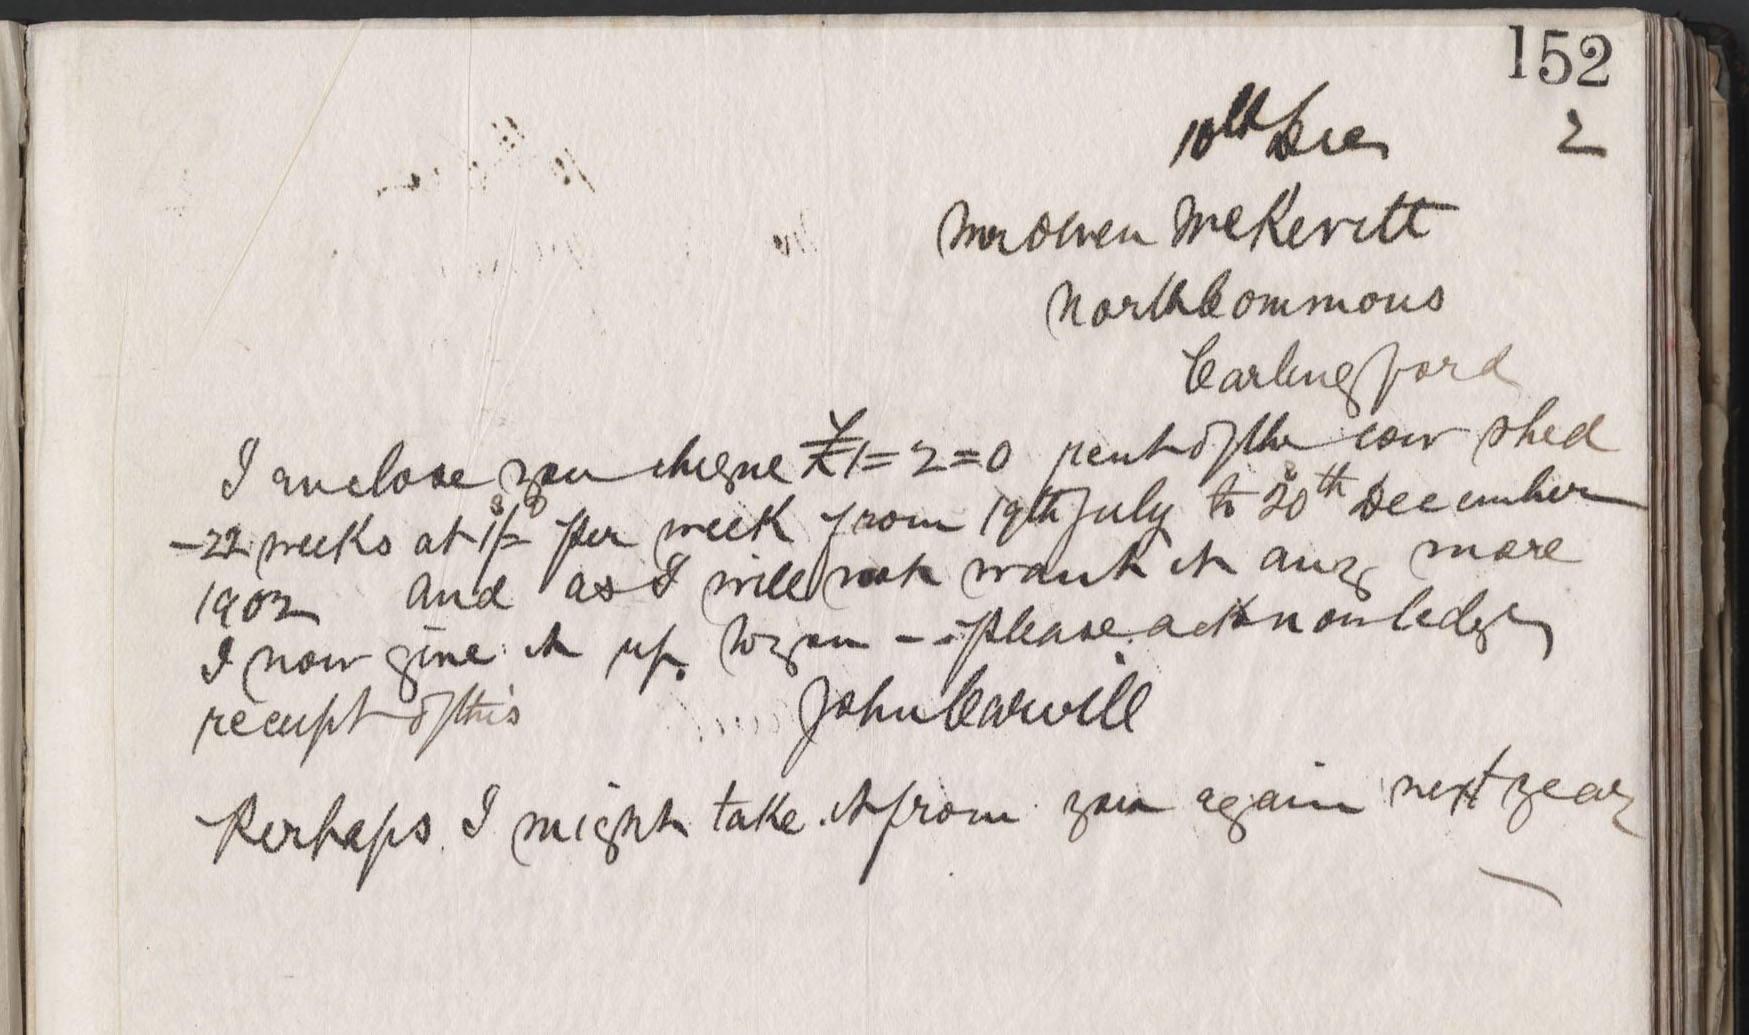 152
10th Dec 2
Mr Owen McKevitt
North Commons
Carlingford
I enclose you cheque £1=2=0 rent of the cow shed
-22 weeks at 1/= per week from 19th July to 20th December
1902 and as I will not want it any more
I now give it up to you -- please acknowledge
receipt of this
John Carvill
Perhaps I might take it from you again next year